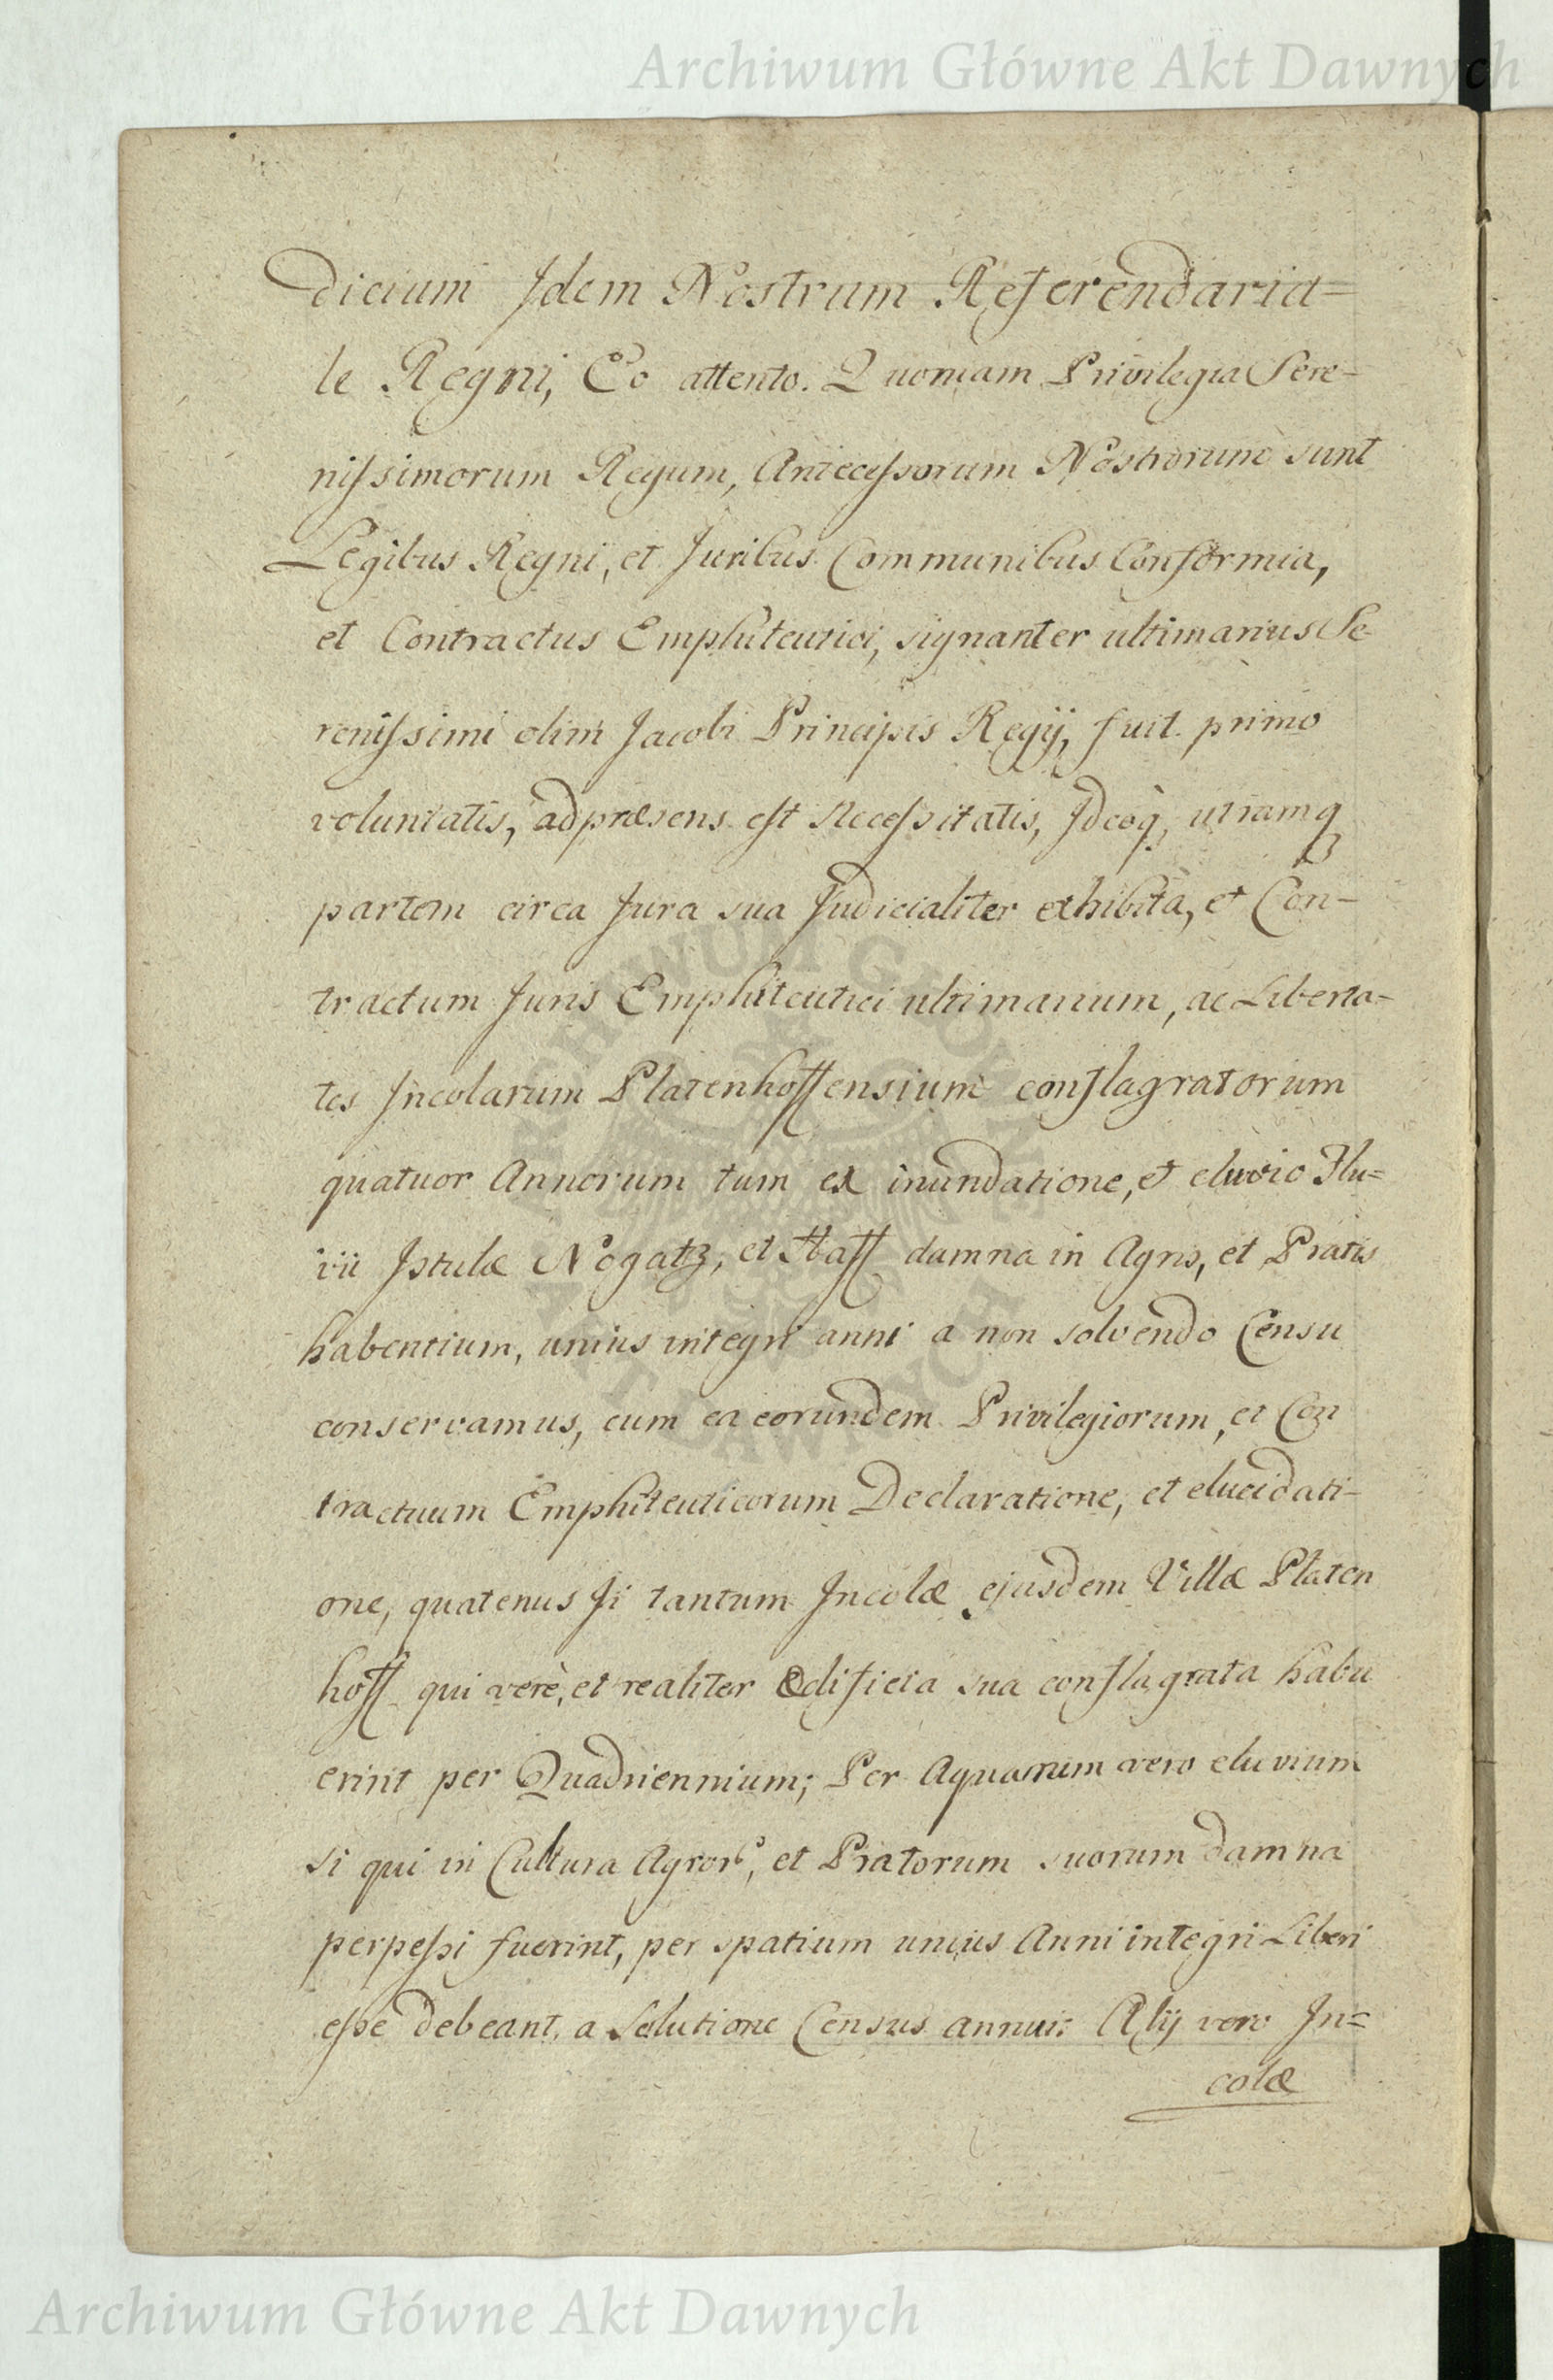 Archiwum Główne Akt Dawnych
dicium Idem Nostrum Referendaria=
le Regni, Eo attento. Quoniam Privilegia Sere-
niſsimorum Regum, Anteceſsorum Nostrorum sunt
Legibus Regni, et Juribus Communibus Conformia,
et Contractus Emphiteutici, signanter ultimarius Se-
reniſsimi olim Jacobi Principis Regij, fuit primo
voluntatis, ad præsens est Neceſsitatis, Ideoq, utramq
partem circa Jura sua Judicialiter exhibita, et Con-
tractum Juris Emphiteutici ultimarium, ac Liberta-
tes Incolarum Platenhoffensium conflagratorum
quatuor Annorum tum ex inundatione, et eluvio Flu=
vii Istulæ Nogatz, et Haff damna in Agris, et Pratis
habentium, unius integri anni a non solvendo Censu
conservamus, cum ea eorundem Privilegiorum, et Con
tractuum Emphiteuticorum Declaratione, et elucidati-
one, quatenus Ji tantum Incolæ ejusdem Villæ Platen
hoff qui verè, et realiter Ædificia sua conflagrata habu
erint per Quadriennium; Per Aquarum vero eluvium
si qui in Cultura Agror, et Pratorum suorum damna
perpeſsi fuerint, per spatium unius Anni integri Liberi
eſse debeant, a Solutione Census annui: Alij vero In=
colæ
ARCHIWUM GŁÓWNE AKT DAWNYCH
Archiwum Główne Akt Dawnych